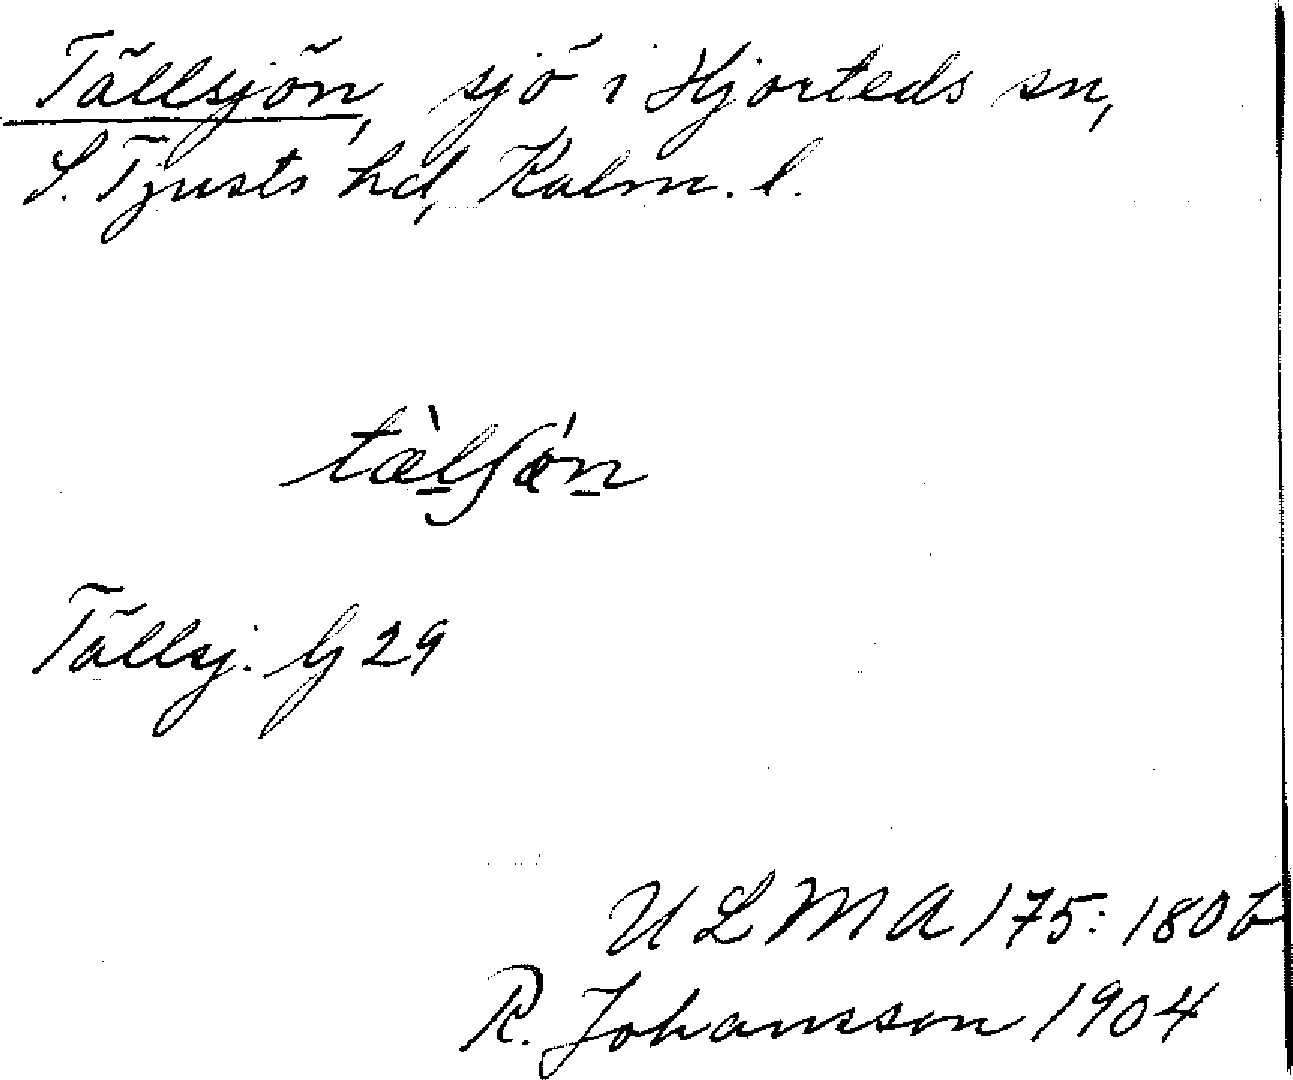 Tällsjön, sjö i Hjorteds sn,
S. Tjusts hd, Kalm. l.
tæ̀lʃǿn
Tällsj. G 29
ULMA 175: 180 b
R. Johansson 1904